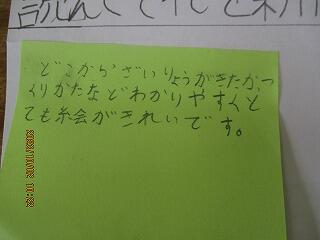 読んで
どこからざいりょうがきたか、つ
くりがたなどわかりやすくと
ても糸会がきれいです。